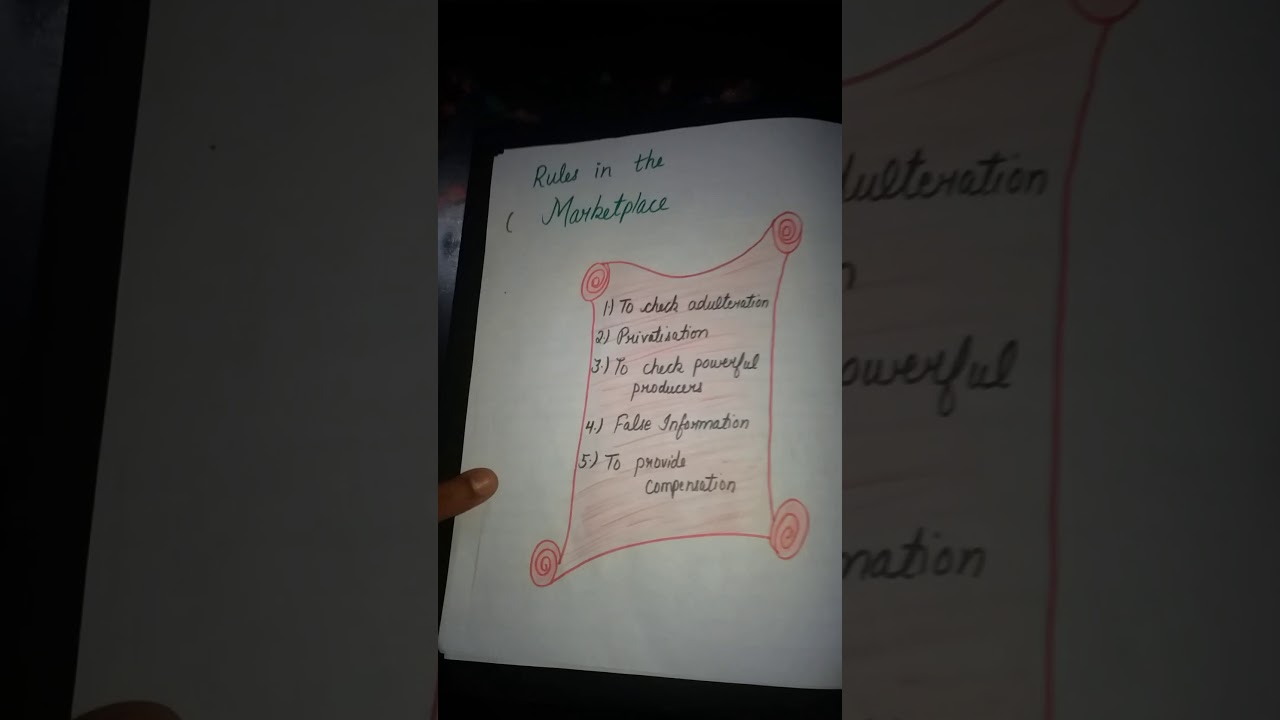 Rules in the
( Marketplace
1.) To check adulteration
2.) Privatisation
3.) To check powerful
producers
4.) False Information
5.) To provide
compensation